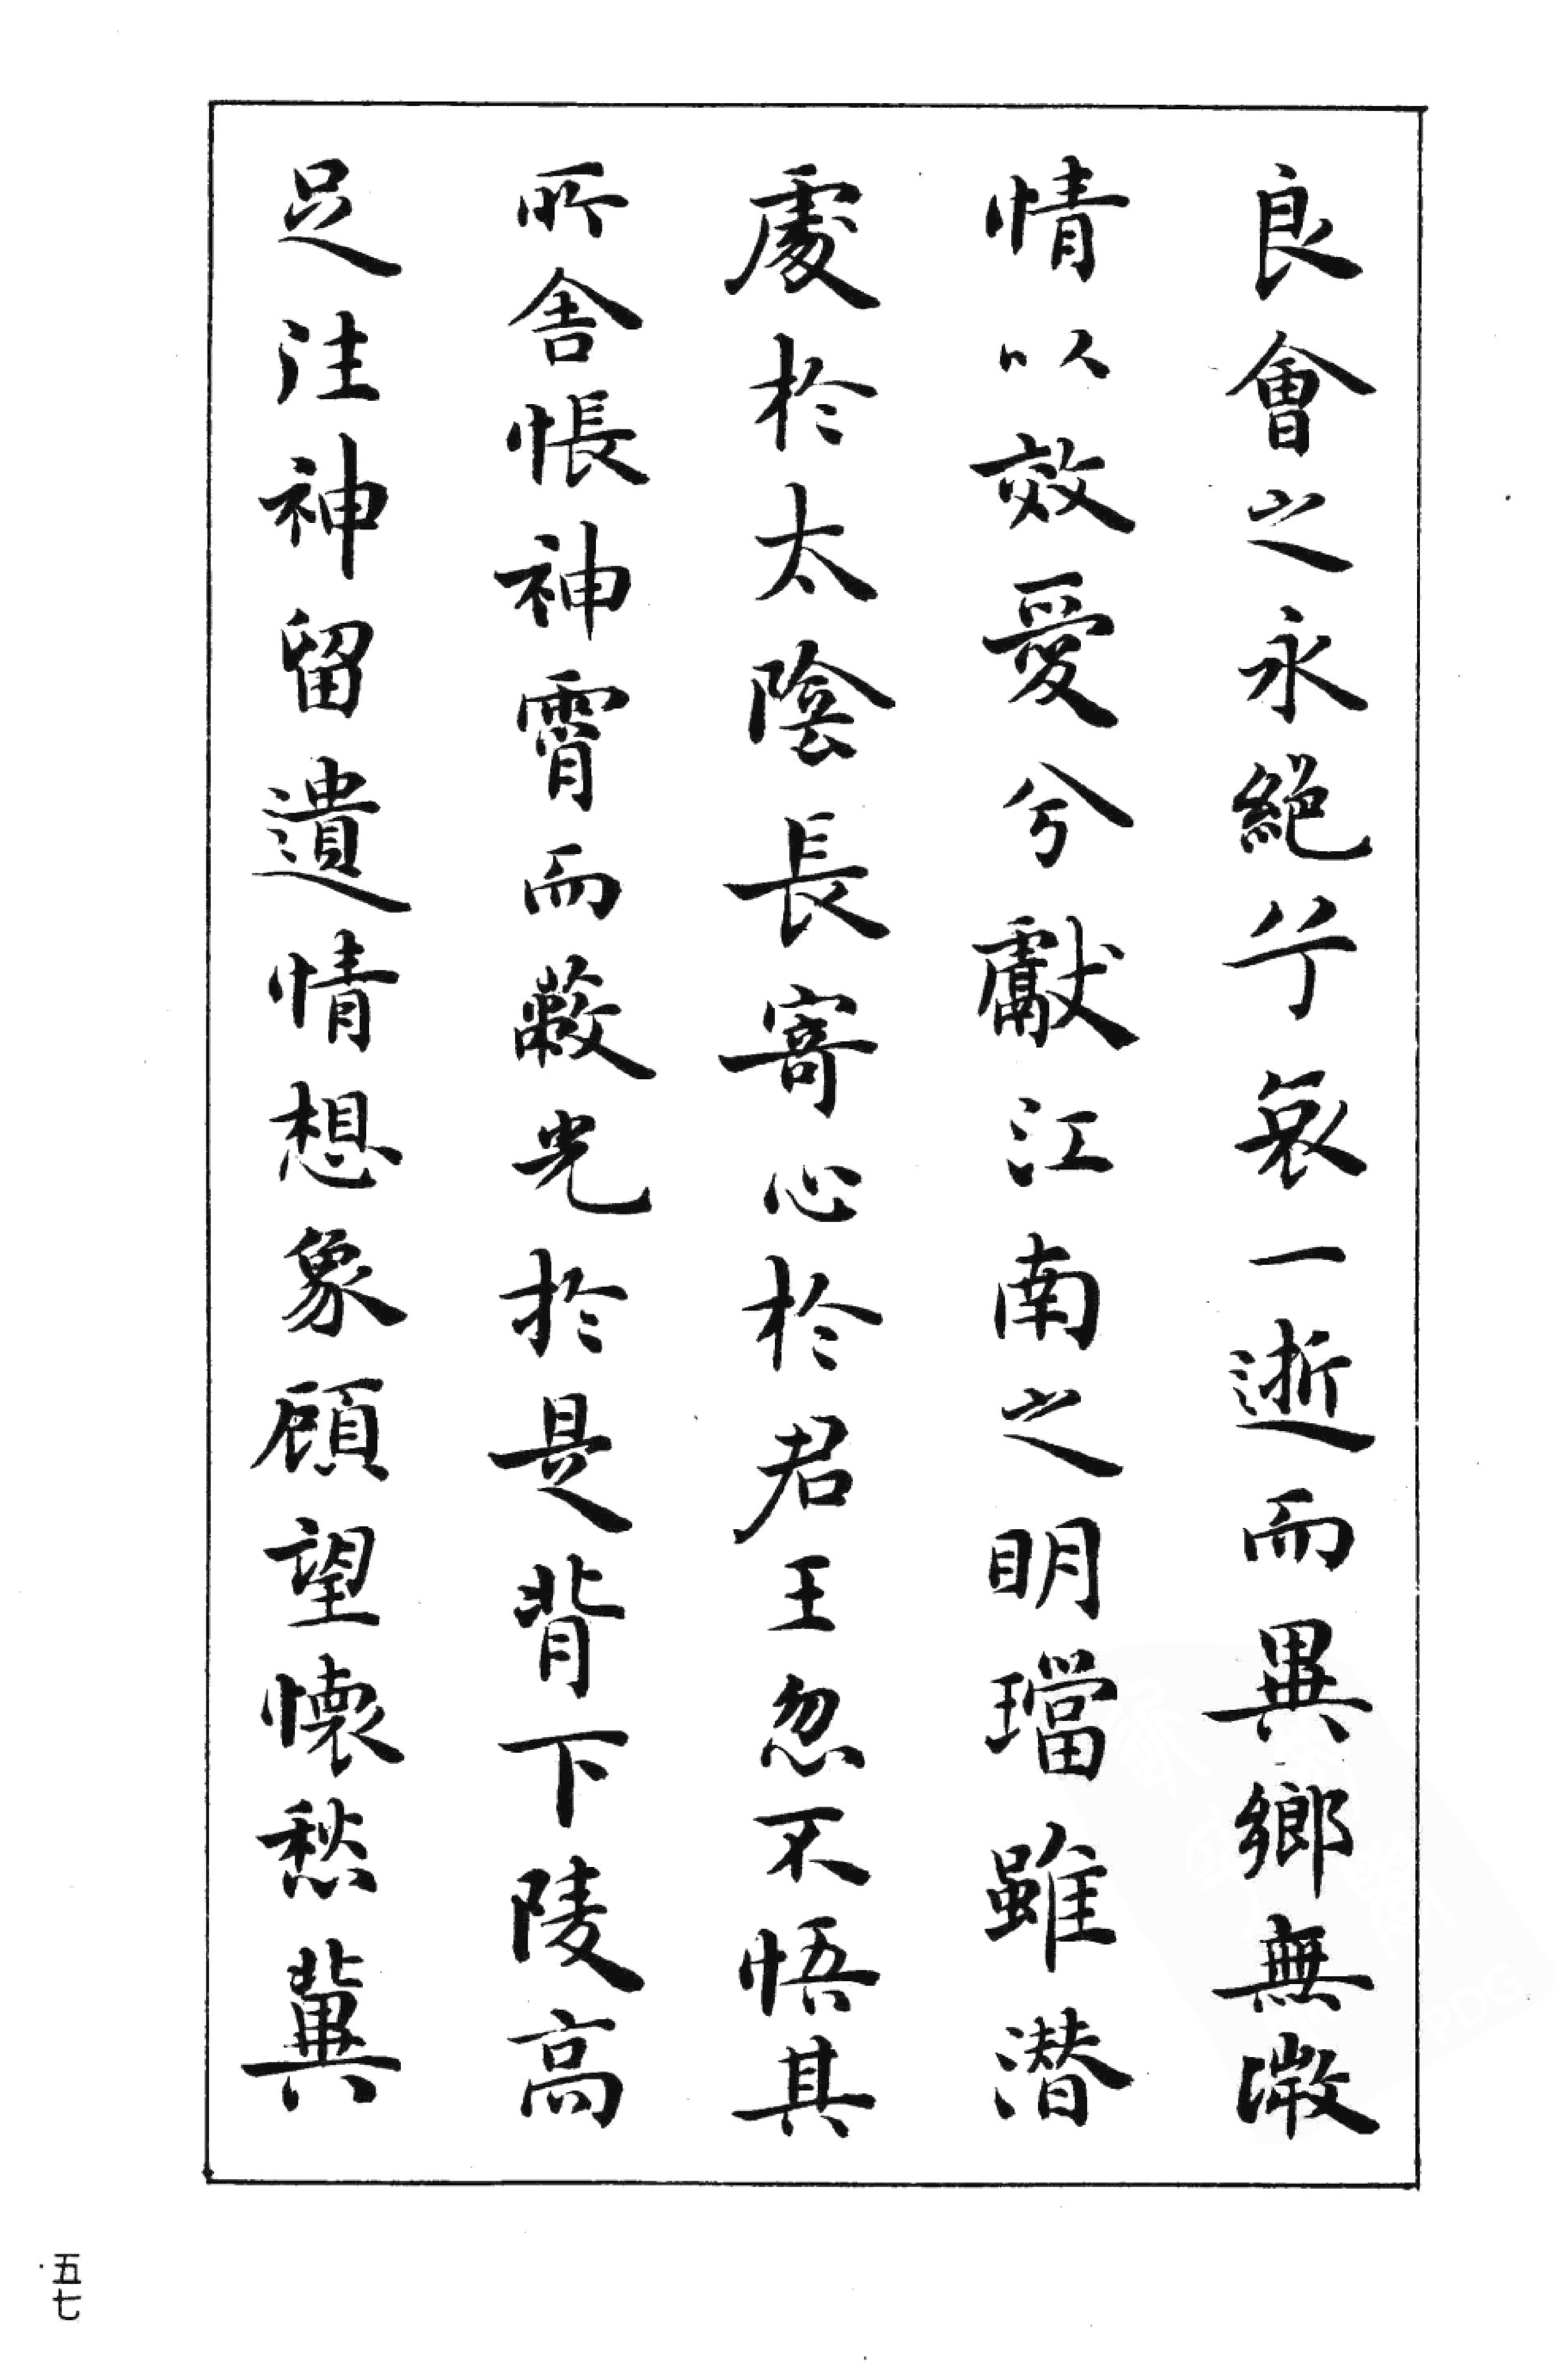 良會之永絕兮哀一逝而異鄉無微
情以效愛兮獻江南之明璫雖潛
處於太陰長寄心於君王忽不悟其
所舍悵神霄而蔽光於是背下陵高
足往神留遺情想象顧望懷愁冀
五七